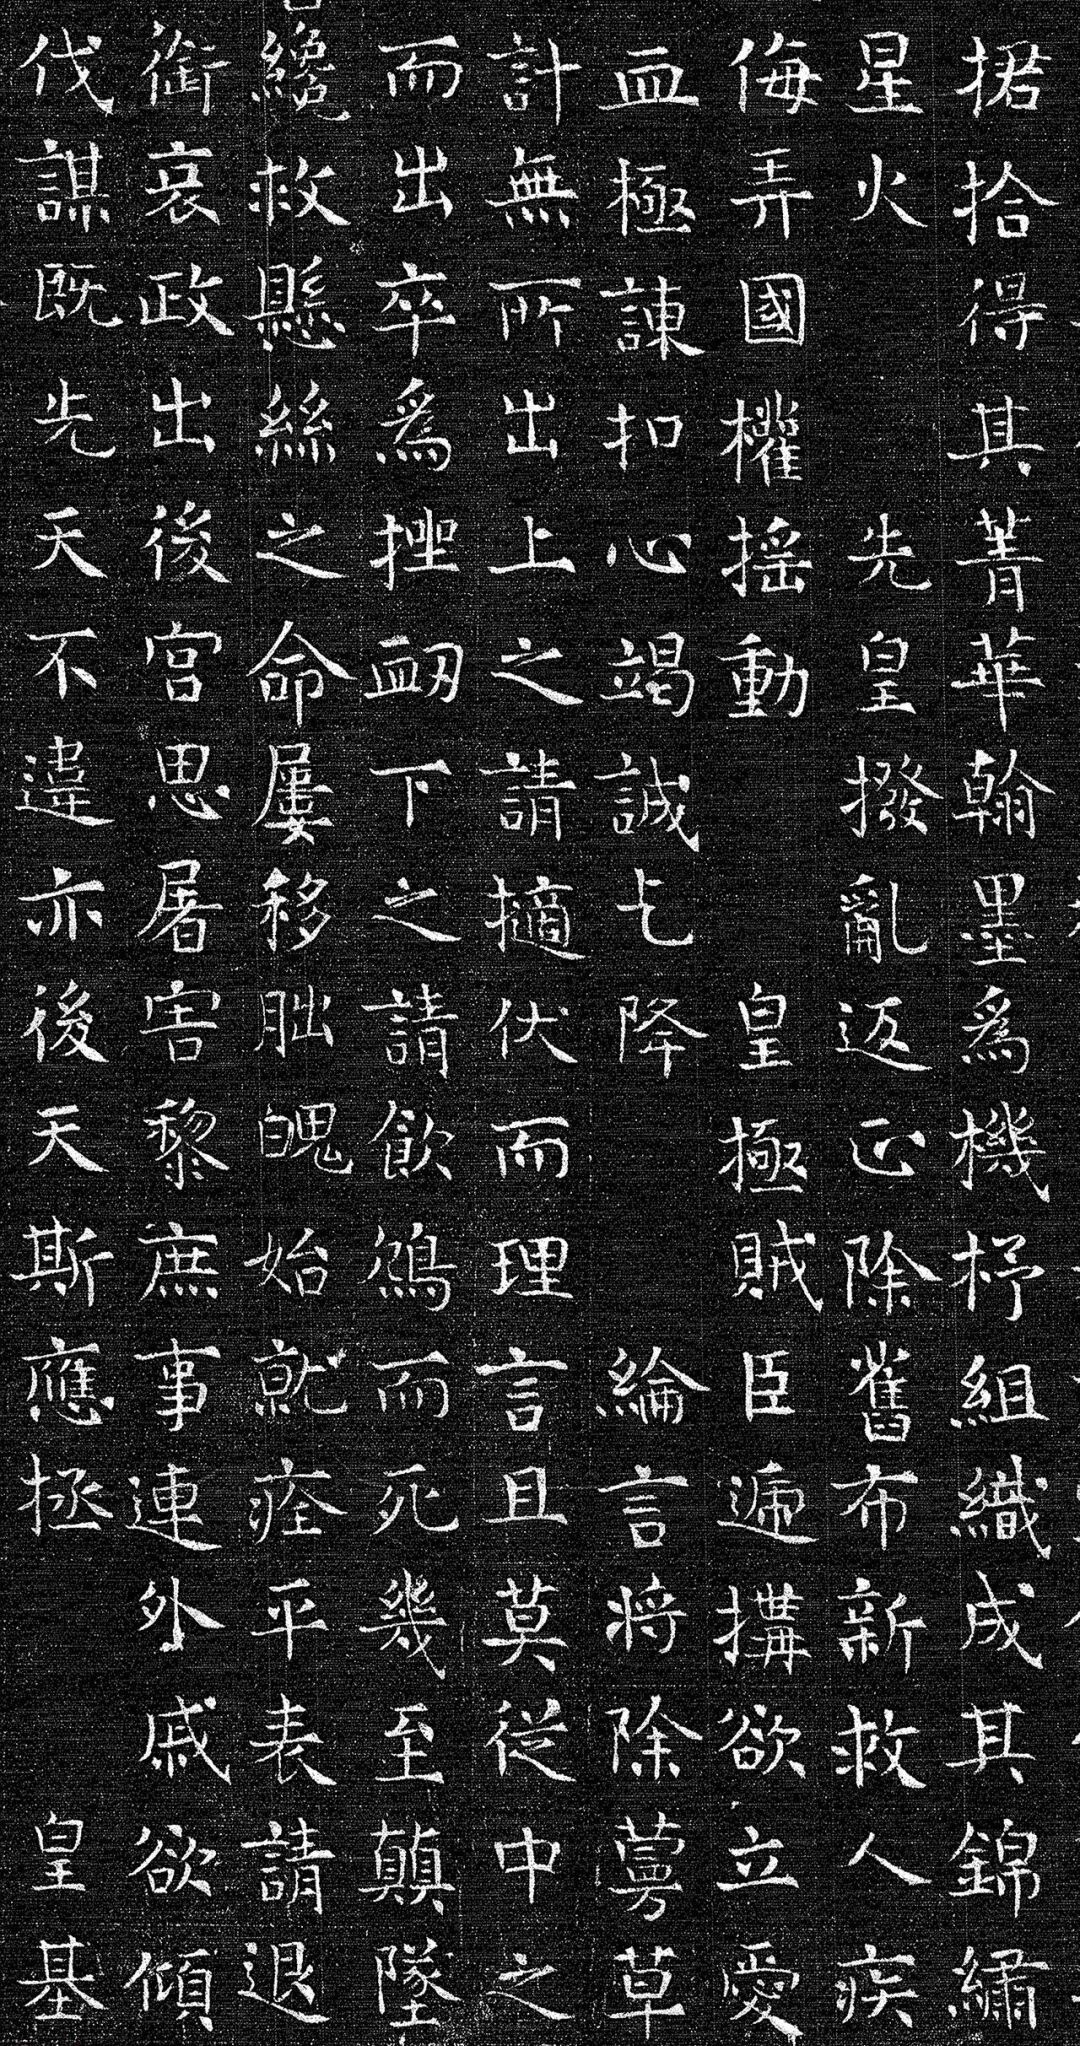 捃拾得其菁華翰墨爲機杼組織成其錦繡
星火　先皇撥亂返正除舊布新救人疾
侮弄國權搖動　皇極賊臣遞搆欲立愛
血極諫扣心竭誠乞降　綸言將除蔓草
計無所出上之請擿伏而理言且莫從中之
而出卒爲挫衂下之請飲鴆而死幾至顛墜
纔救懸絲之命屢移朏魄始就痊平表請退
銜哀政出後宮思屠害黎庶事連外戚欲傾
伐謀既先天不違亦後天斯應拯　皇基